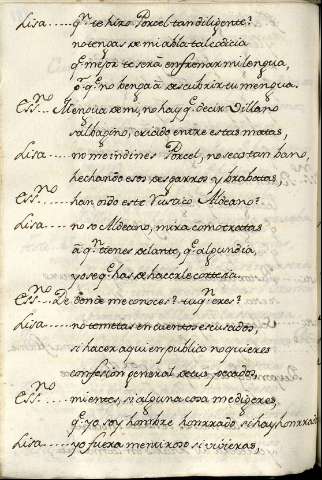 Lisa..... qⁿ. te hizo Porcel tan diligente?
no tengas de mi abla tal codicia
q̃. mejor te será enfrenar mi lengua,
pᵃ. q̃. no benga à descubrir tu mengua.
Essⁿᵒ... Mengua de mi, no hay q̃. decir Villano
salbagino, criado entre estas matas,
Lisa..... no me indines Porcel, no seas tan bano,
hechando esos desgarros y brabatas
Essⁿᵒ.... han oido este Rustico Aldeano?
Lisa..... no so Aldeano, mira como tratas
à qⁿ. tienes delante, q̃. algun dia,
yo se q̃. has de hacerle cortesia.
Essⁿᵒ.. De donde me conoces? tu qⁿ. eres?
Lisa..... no te metas en cuentos escusados,
si hacer aqui en publico no quieres
confesion general de tus pecados,
Essⁿᵒ.... mientes, si alguna cosa me digeres,
q̃. yo soy hombre honrrado, si hay honrrado
Lisa..... yo fuera mentiroso si